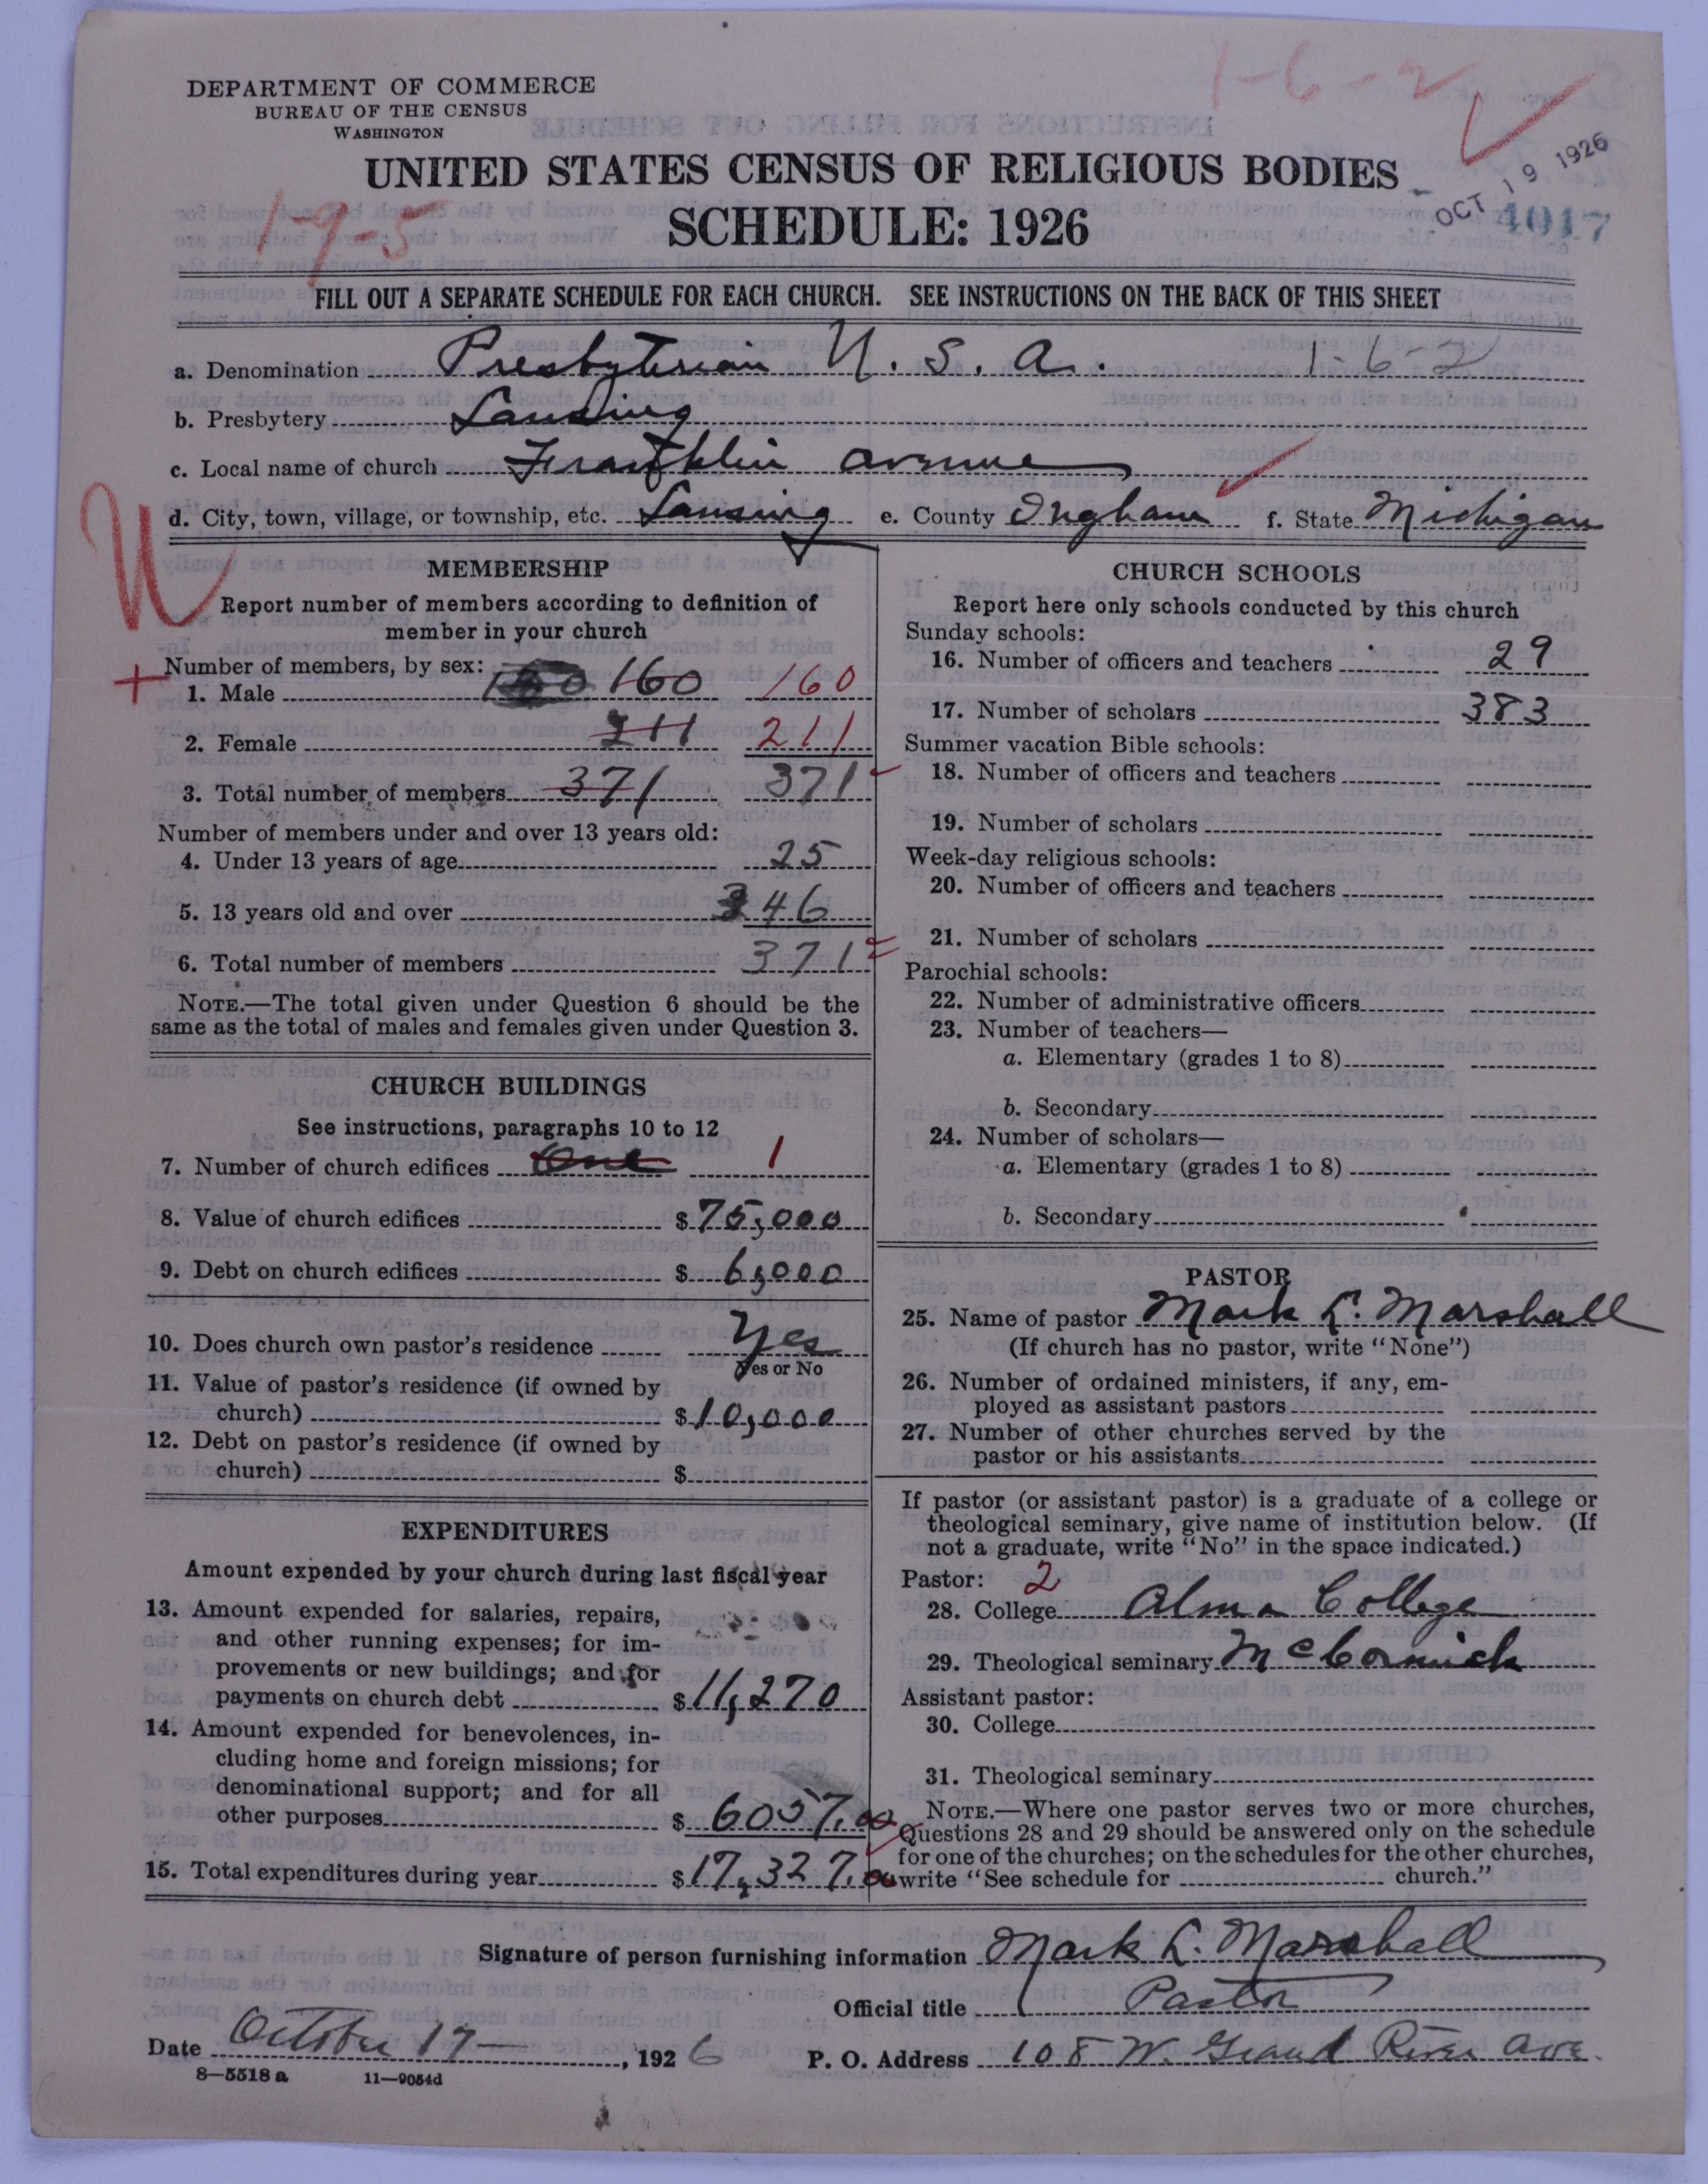 1-6-2
DEPARTMENT OF COMMERCE
BUREAU OF THE CENSUS
WASHINGTON
UNITED STATES CENSUS OF RELIGIOUS BODIES
OCT 19 1926
4017
1-9-5
SCHEDULE: 1926
FILL OUT A SEPARATE SCHEDULE FOR EACH CHURCH. SEE INSTRUCTIONS ON THE BACK OF THIS SHEET
a. Denomination Presbyterian U. S. A. 1-6-2
b. Presbytery Lansing
c. Local name of church Franklin avenue
d. City, town, village, or township, etc. Lansing e. County Ingham f. State Michigan
U
MEMBERSHIP
Report number of members according to definition of
member in your church
Number of members, by sex:
1. Male 160 160
2. Female 211 211
3. Total number of members 371 371
Number of members under and over 13 years old:
4. Under 13 years of age 25
5. 13 years old and over 346
6. Total number of members 371
NOTE.—The total given under Question 6 should be the
same as the total of males and females given under Question 3.
CHURCH BUILDINGS
See instructions, paragraphs 10 to 12
7. Number of church edifices One 1
8. Value of church edifices $ 75,000
9. Debt on church edifices $ 6,000
10. Does church own pastor's residence Yes
Yes or No
11. Value of pastor's residence (if owned by
church) $ 10,000
12. Debt on pastor's residence (if owned by
church) $
EXPENDITURES
Amount expended by your church during last fiscal year
13. Amount expended for salaries, repairs,
and other running expenses; for im-
provements or new buildings; and for
payments on church debt $ 11,270
14. Amount expended for benevolences, in-
cluding home and foreign missions; for
denominational support; and for all
other purposes $ 6057.00
15. Total expenditures during year $ 17,327.00
CHURCH SCHOOLS
Report here only schools conducted by this church
Sunday schools:
16. Number of officers and teachers 29
17. Number of scholars 383
Summer vacation Bible schools:
18. Number of officers and teachers
19. Number of scholars
Week-day religious schools:
20. Number of officers and teachers
21. Number of scholars
Parochial schools:
22. Number of administrative officers
23. Number of teachers—
a. Elementary (grades 1 to 8)
b. Secondary
24. Number of scholars—
a. Elementary (grades 1 to 8)
b. Secondary
PASTOR
25. Name of pastor Mark L. Marshall
(If church has no pastor, write "None")
26. Number of ordained ministers, if any, em-
ployed as assistant pastors
27. Number of other churches served by the
pastor or his assistants
If pastor (or assistant pastor) is a graduate of a college or
theological seminary, give name of institution below. (If
not a graduate, write "No" in the space indicated.)
Pastor: 2
28. College Alma College
29. Theological seminary McCormick
Assistant pastor:
30. College
31. Theological seminary
NOTE.—Where one pastor serves two or more churches,
Questions 28 and 29 should be answered only on the schedule
for one of the churches; on the schedules for the other churches,
write "See schedule for church."
Signature of person furnishing information Mark L. Marshall
Official title Pastor
Date October 17, 1926 P. O. Address 108 W. Grand River Ave.
8—5518 a 11—9054d